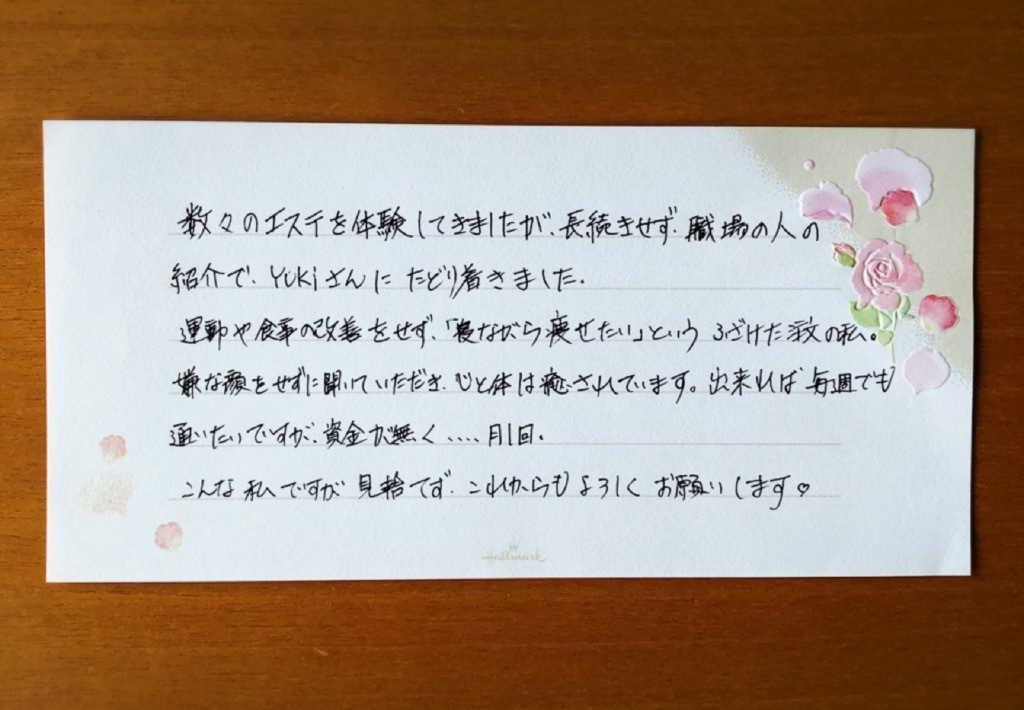 数々のエステを体験してきましたが、長続きせず、職場の人の
紹介で、YUKIさんに たどり着きました。
運動や食事の改善をせず、「寝ながら痩せたい」という ふざけた要求の私。
嫌な顔をせずに聞いていただき、心と体は癒されています。出来れば毎週でも
通いたいですが、資金が無く....月1回。
こんな私ですが見捨てず、これからもよろしくお願いします♡
Hallmark